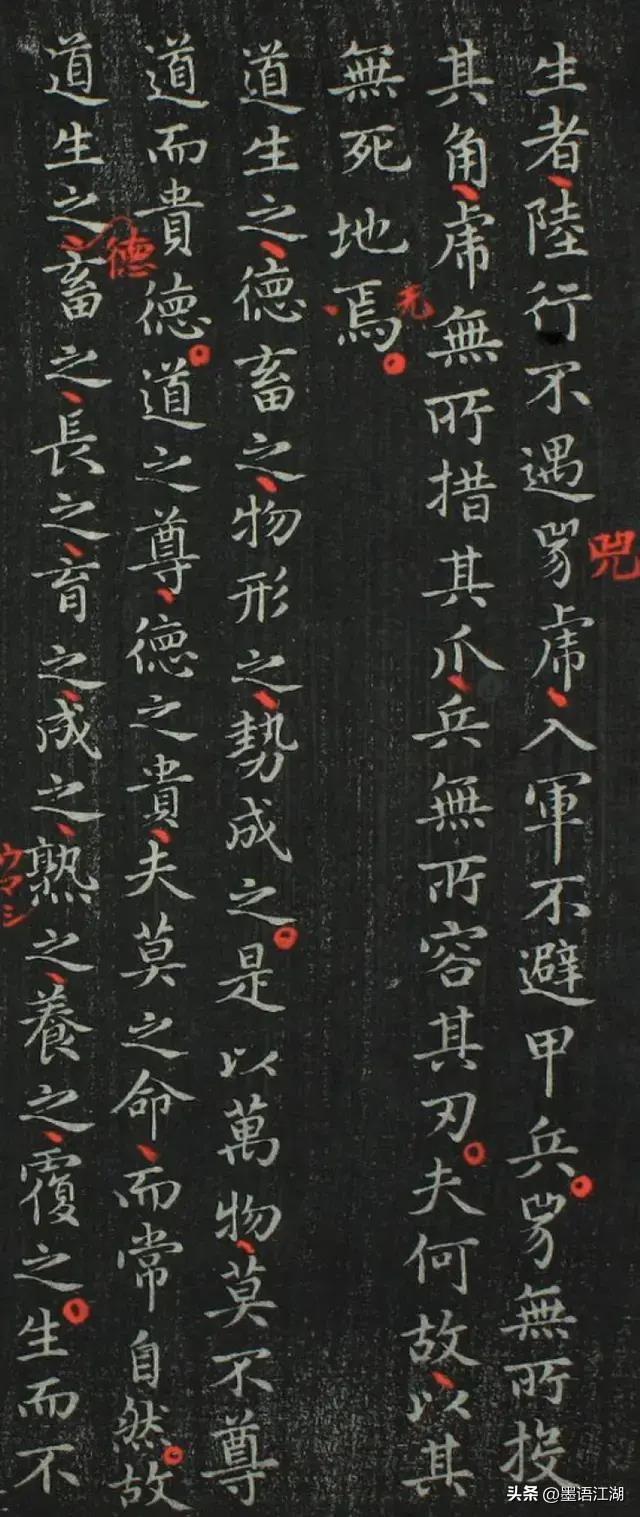 生者陸行不遇兕虎入軍不避甲兵兕無所投
兕
其角虎無所措其爪兵無所容其刃夫何故以其
無死地焉
道生之德畜之物形之勢成之是以萬物莫不尊
道而貴德道之尊德之貴夫莫之命而常自然故
道生之畜之長之育之成之熟之養之覆之生而不
德
ウマシ
头条 @墨语江湖